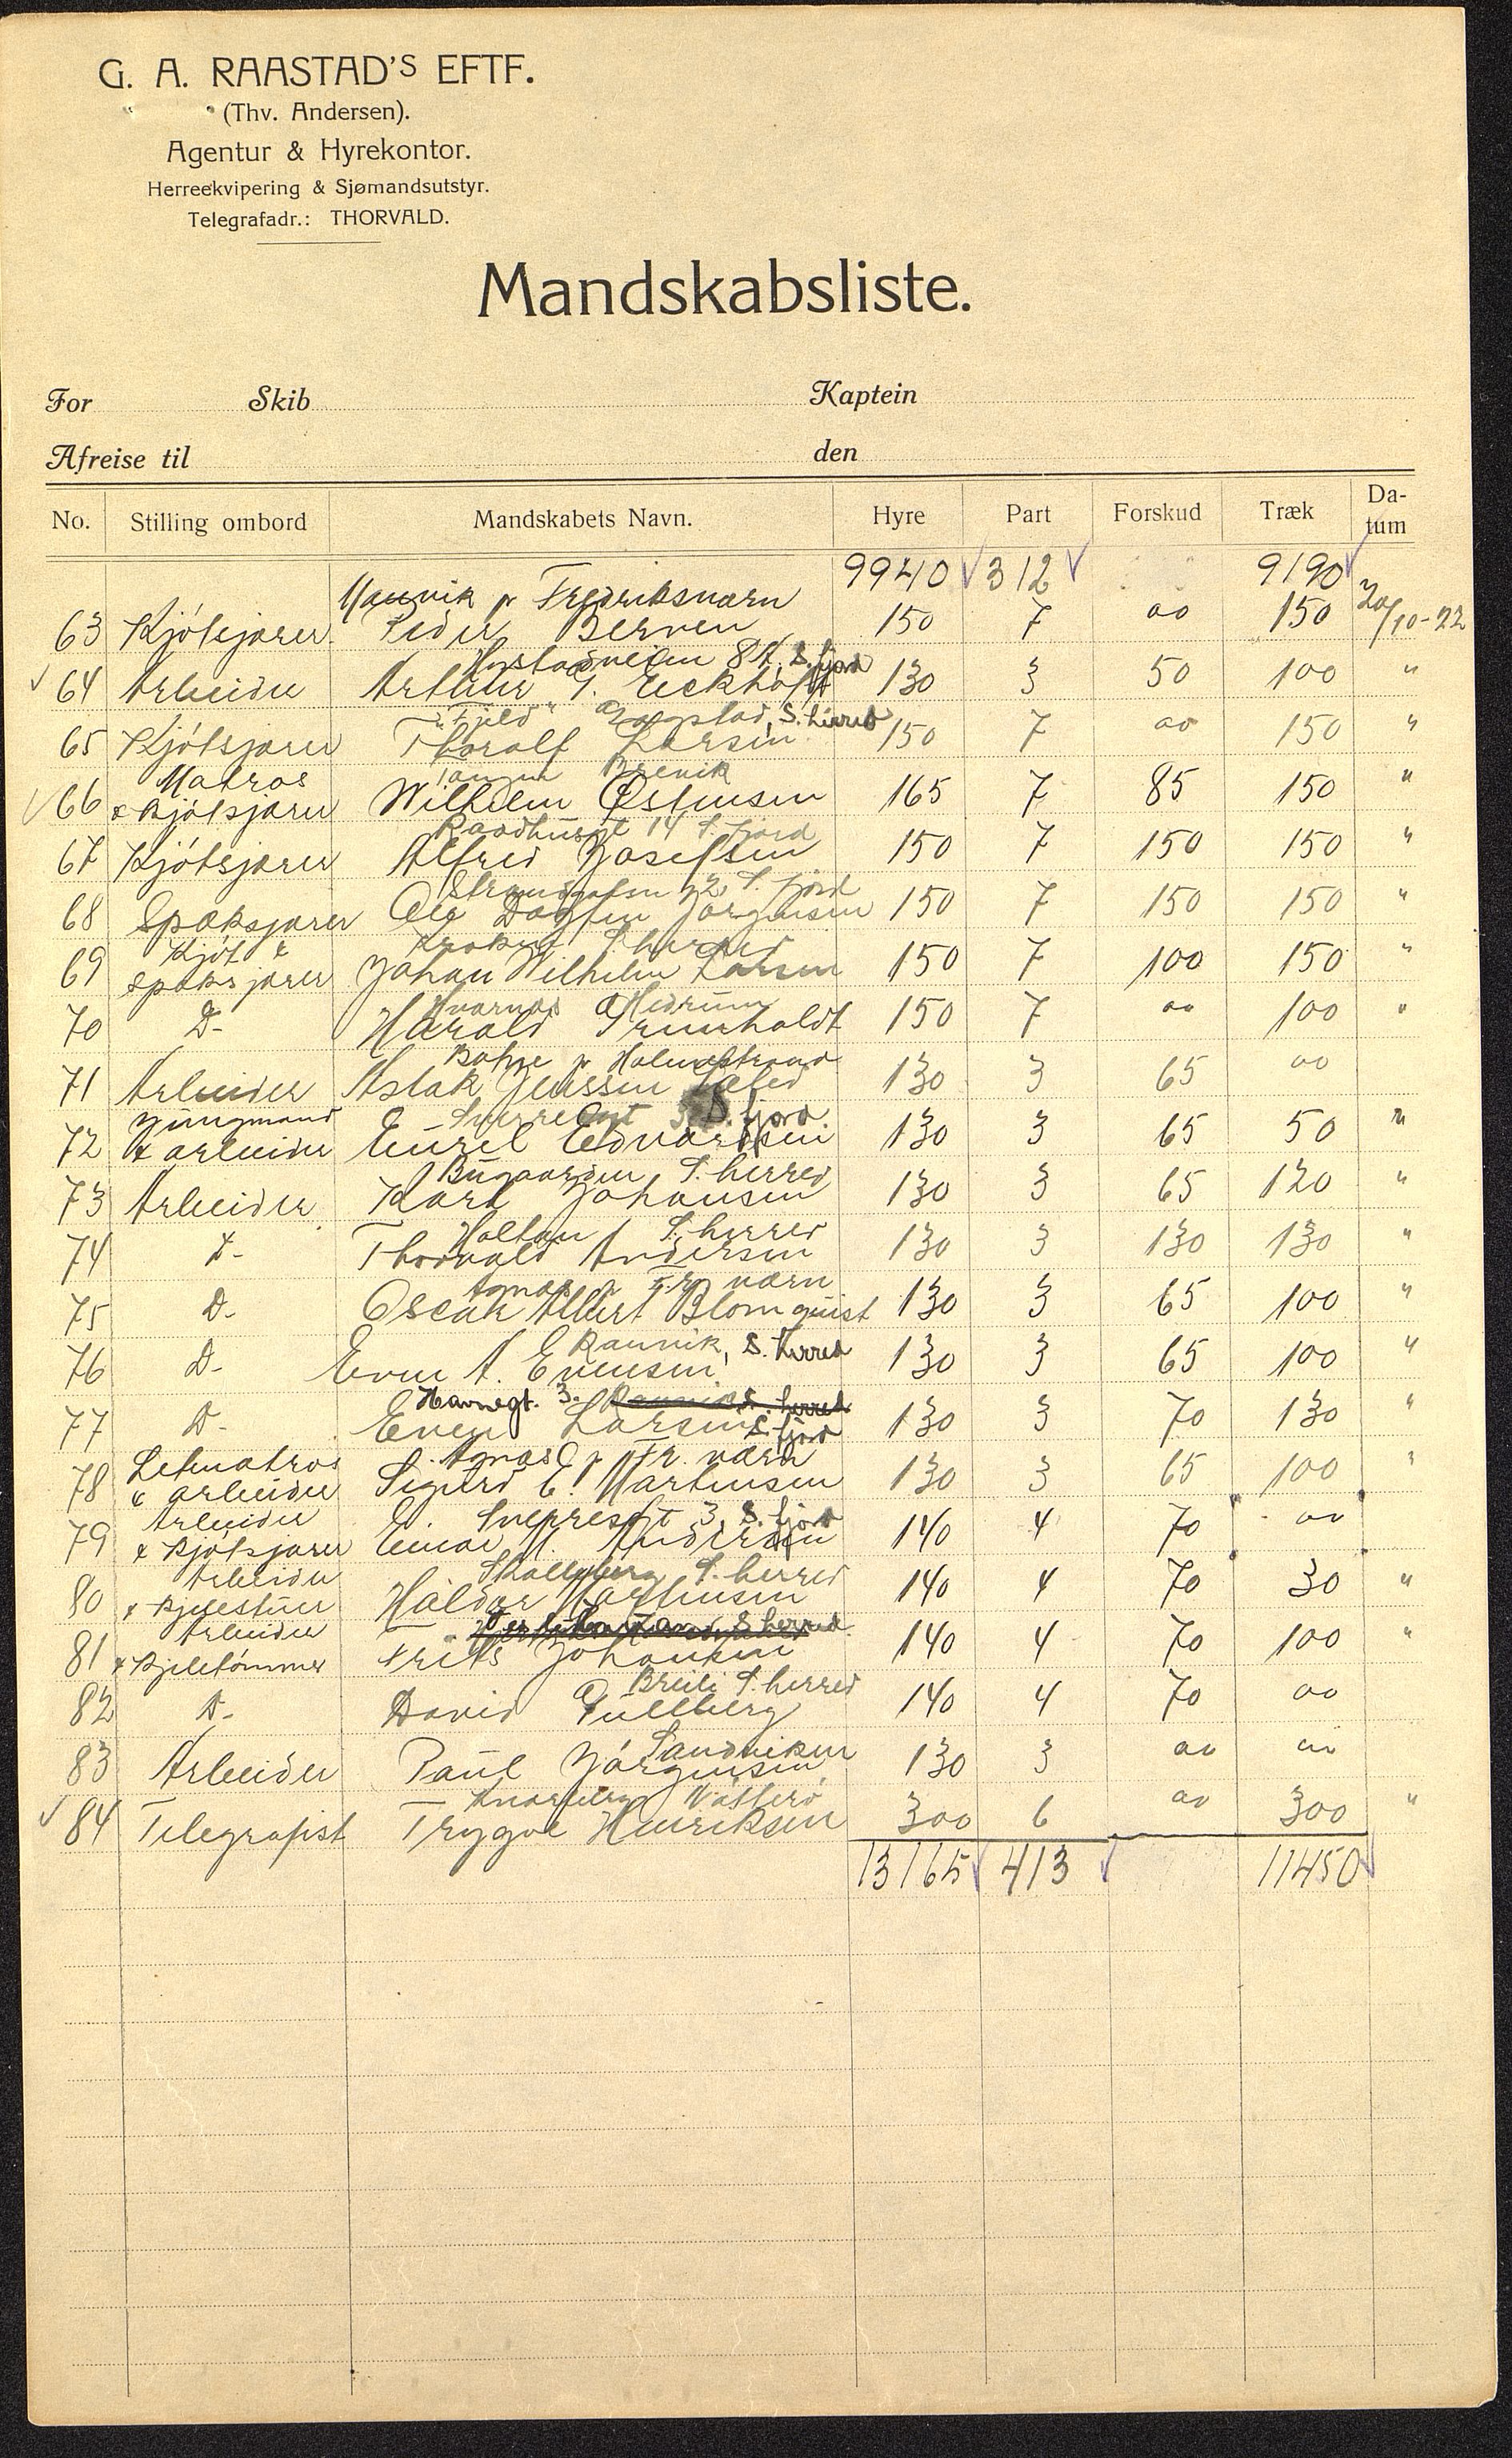 G. A. RAASTAD'S EFTF.
(Thv. Andersen).
Agentur & Hyrekontor.
Herreekvipering & Sjømandsutstyr.
Telegrafadr.: THORVALD.
Mandskabsliste.
For Skib Kaptein
Afreise til den
No. Stilling ombord Mandskabets Navn. Hyre Part Forskud Træk Da-tum
9940 312 9190
Mauvik pr Fredriksværn
63 Kjötsjærer Peder Berven 150 7 oo 150 20/10-22
Hystadveien 8A. S.fjord
64 Arbeider Arthur G. Eeckhofft 130 3 50 100 "
"Fjeld" Gogstad, S.herred
65 Kjötsjærer Thoralf Larsen 150 7 oo 150 "
Matros Brevik
66 & Kjötsjærer Wilhelm Østensen 165 7 85 150 "
Raadhusgt 14 S.fjord
67 Kjötsjærer Alfred Josefsen 150 7 150 150 "
Strandgaten S.fjord
68 Spæksjærer Ole Dagfin Jörgensen 150 7 150 150 "
Kjöt & S.herred
69 spæksjærer Johan Wilhelm Larsen 150 7 100 150 "
Hvarnes Hedrum
70 D- Harald Trumholdt 150 7 oo 100 "
Botne pr Holmestrand
71 Arbeider Aslak Jenssen 130 3 65 oo
Jungmand Sverresgt S.fjord
72 & arbeider Emil Edvardsen 130 3 65 50 "
Bugaarden S.herred
73 Arbeider Karl Johansen 130 3 65 120 "
Haltan S.herred
74 D- Thorvald Andersen 130 3 130 130 "
Agnæs pr Fr. værn
75 D- Oscar Albert Blomquist 130 3 65 100 "
Rauvik, S.herred
76 D- Even A. Evensen 130 3 65 100 "
Havnegt. 3. Rauvik S.herred
77 D- Even Larsen S.fjord 130 3 70 130 "
Letmatros Agnæs pr Fr. værn
78 & arbeider Sigurd E. Martinsen 130 3 65 100 "
Arbeider Sverresgt 3, S.fjord
79 & Kjötsjærer Einar M. Andersen 140 4 70 oo
Arbeider S.herred
80 & Kjelestuer Haldor Mathisen 140 4 70 30 "
Arbeider S.herred
81 & Kjeletömmer Frits Johansen 140 4 70 100 "
Breili S.herred
82 D- David Gullberg 140 4 70 oo
Sandviken
83 Arbeider Paul Jörgensen 130 3 oo oo
Knarberg Nötterö
84 Telegrafist Trygve Henriksen 300 6 oo 300 "
13165 413 11450